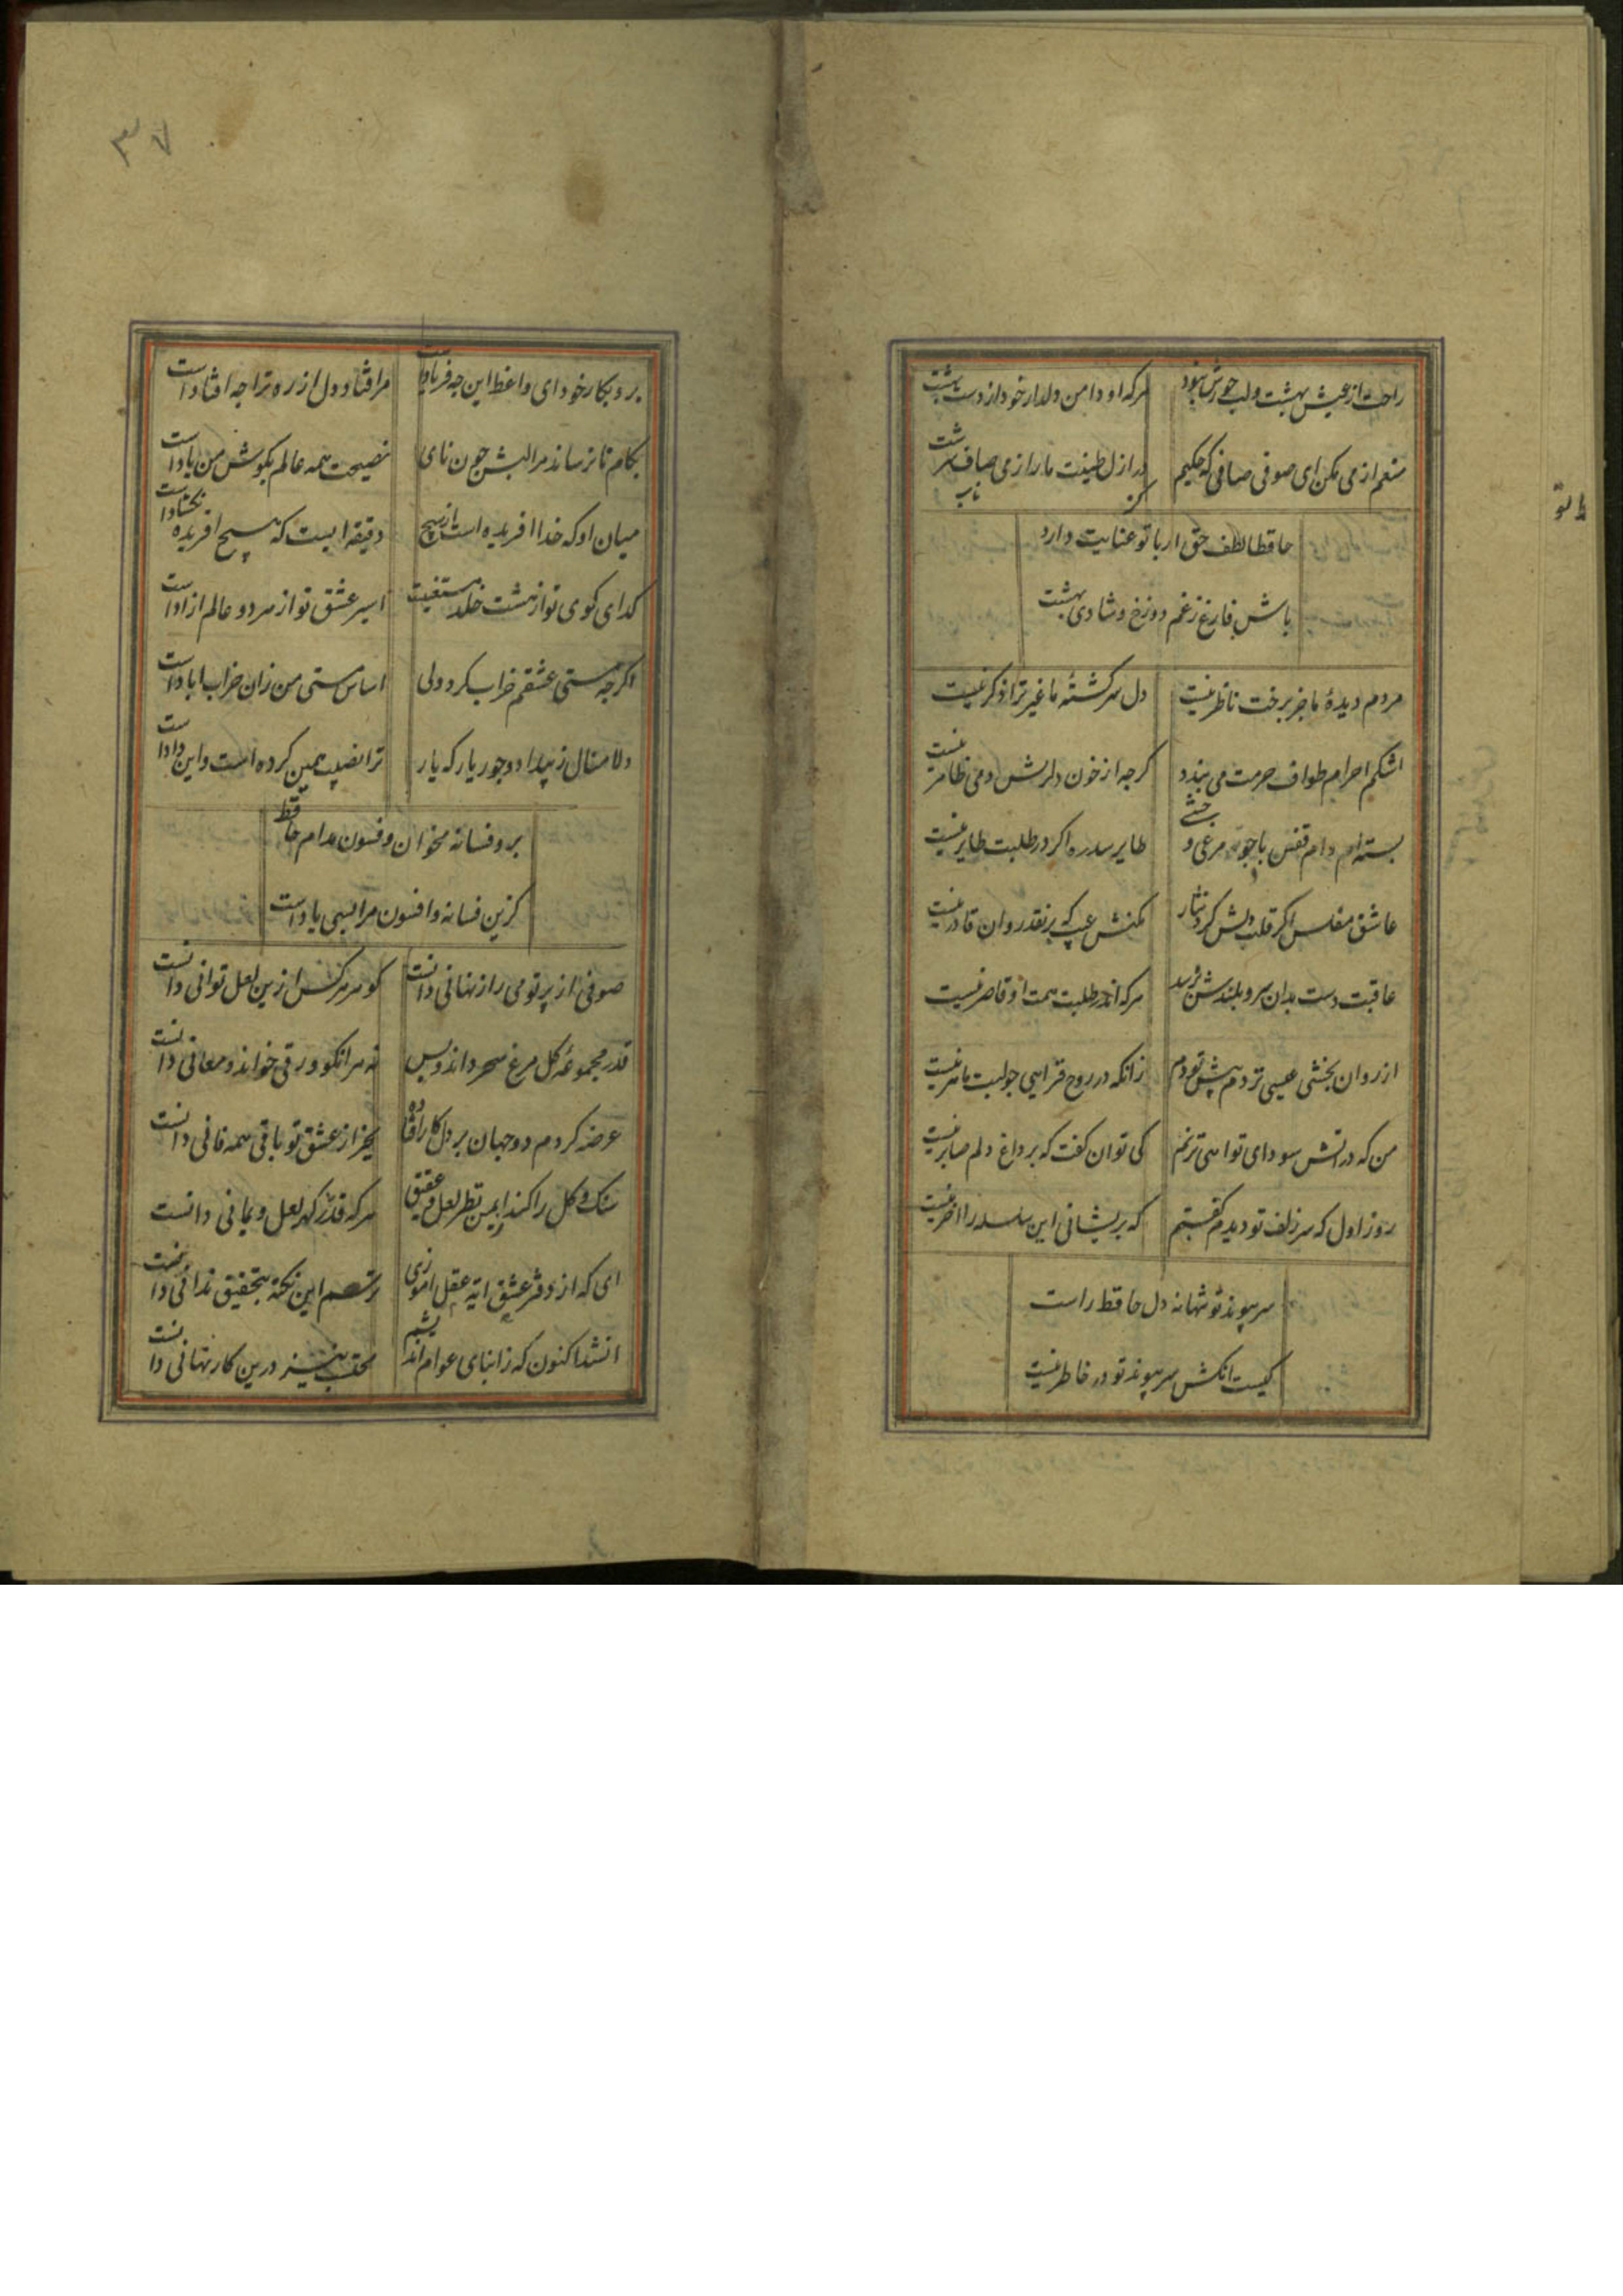 راحت از عیش بهشت و لب حورش نبود
هرکه او دامن دلدار خود از دست بهشت
منعم از می مکن ای صوفی صافی که حکیم
در ازل طینت ما را ز می صاف سرشت
حافظا لطف حق ار با تو عنایت دارد
باش فارغ ز غم دوزخ و شادی بهشت
مردم دیدهٔ ما جز برخت ناظر نیست
دل سرکشتهٔ ما غیر ترا ذاکر نیست
اشکم احرام طواف حرمت می بندد
کرچه از خون دل ریش دمی طاهر نیست
بستهٔ دام قفس باد چو مرغ وحشی
طایر سدره اکر در طلبت طایر نیست
عاشق مفلس اکر قلب دلش کرد نثار
مکنش عیب که بر نقد روان قادر نیست
عاقبت دست بدان سرو بلندش برسد
هرکه اندر طلبت همت او قاصر نیست
از روان بخشی عیسی نزدم پیش تو دم
زانکه در روح فزایی چو لبت ماهر نیست
من که در اتش سودای تو اهی نزنم
کی توان کفت که بر داغ دلم صابر نیست
روز اول که سر زلف تو دیدم کفتم
که پریشانی این سلسله را اخر نیست
سر پیوند تو تنها نه دل حافظ راست
کیست انکش سر پیوند تو در خاطر نیست
۳۷
برو بکار خود ای واعظ این چه فریادست
مرا فتاد دل از ره ترا چه افتادست
بکام تا نرساند مرا لبش چون نای
نصیحت همه عالم بکوش من بادست
میان او که خدا افریده است از هیچ
دقیقه ایست که هیچ افریده نکشادست
کدای کوی تو از هشت خلد مستغنیست
اسیر عشق تو از هر دو عالم ازادست
اکرچه مستی عشقم خراب کرد ولی
اساس هستی من زان خراب ابادست
دلا منال ز بیداد و جور یار که یار
ترا نصیب همین کرده است و این دادست
برو فسانه مخوان و فسون مدام حافظ
کزین فسانه و افسون مرا بسی یادست
صوفی از پرتو می راز نهانی دانست
کوهر هرکس ازین لعل توانی دانست
قدر مجموعهٔ کل مرغ سحر داند و بس
نه هر انکو ورقی خواند و معانی دانست
عرضه کردم دو جهان بر دل کار افتاده
بجز از عشق تو باقی همه فانی دانست
سنک و کل را کند از یمن نظر لعل و عقیق
هرکه قدر کهر لعل و یمانی دانست
ای که از دفتر عشق ایه عقل اموزی
ترسم این نکته بتحقیق ندانی دانست
ان شد اکنون که ز ابنای عوام اندیشم
محتسب نیز درین کار نهانی دانست